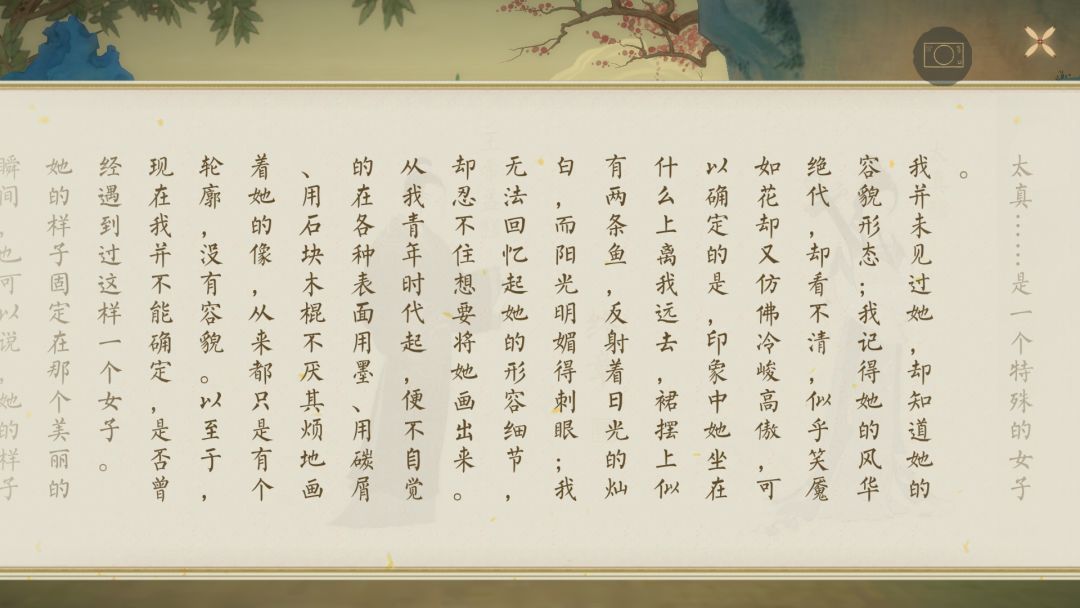 太真……是一个特殊的女子
。
我并未见过她，却知道她的
容貌形态；我记得她的风华
绝代，却看不清，似乎笑魇
如花却又仿佛冷峻高傲，可
以确定的是，印象中她坐在
什么上离我远去，裙摆上似
有两条鱼，反射着日光的灿
白，而阳光明媚得刺眼；我
无法回忆起她的形容细节，
却忍不住想要将她画出来。
从我青年时代起，便不自觉
的在各种表面用墨、用碳屑
、用石块木棍不厌其烦地画
着她的像，从来都只是有个
轮廓，没有容貌。以至于，
现在我并不能确定，是否曾
经遇到过这样一个女子。
她的样子固定在那个美丽的
瞬间，也可以说，她的样子